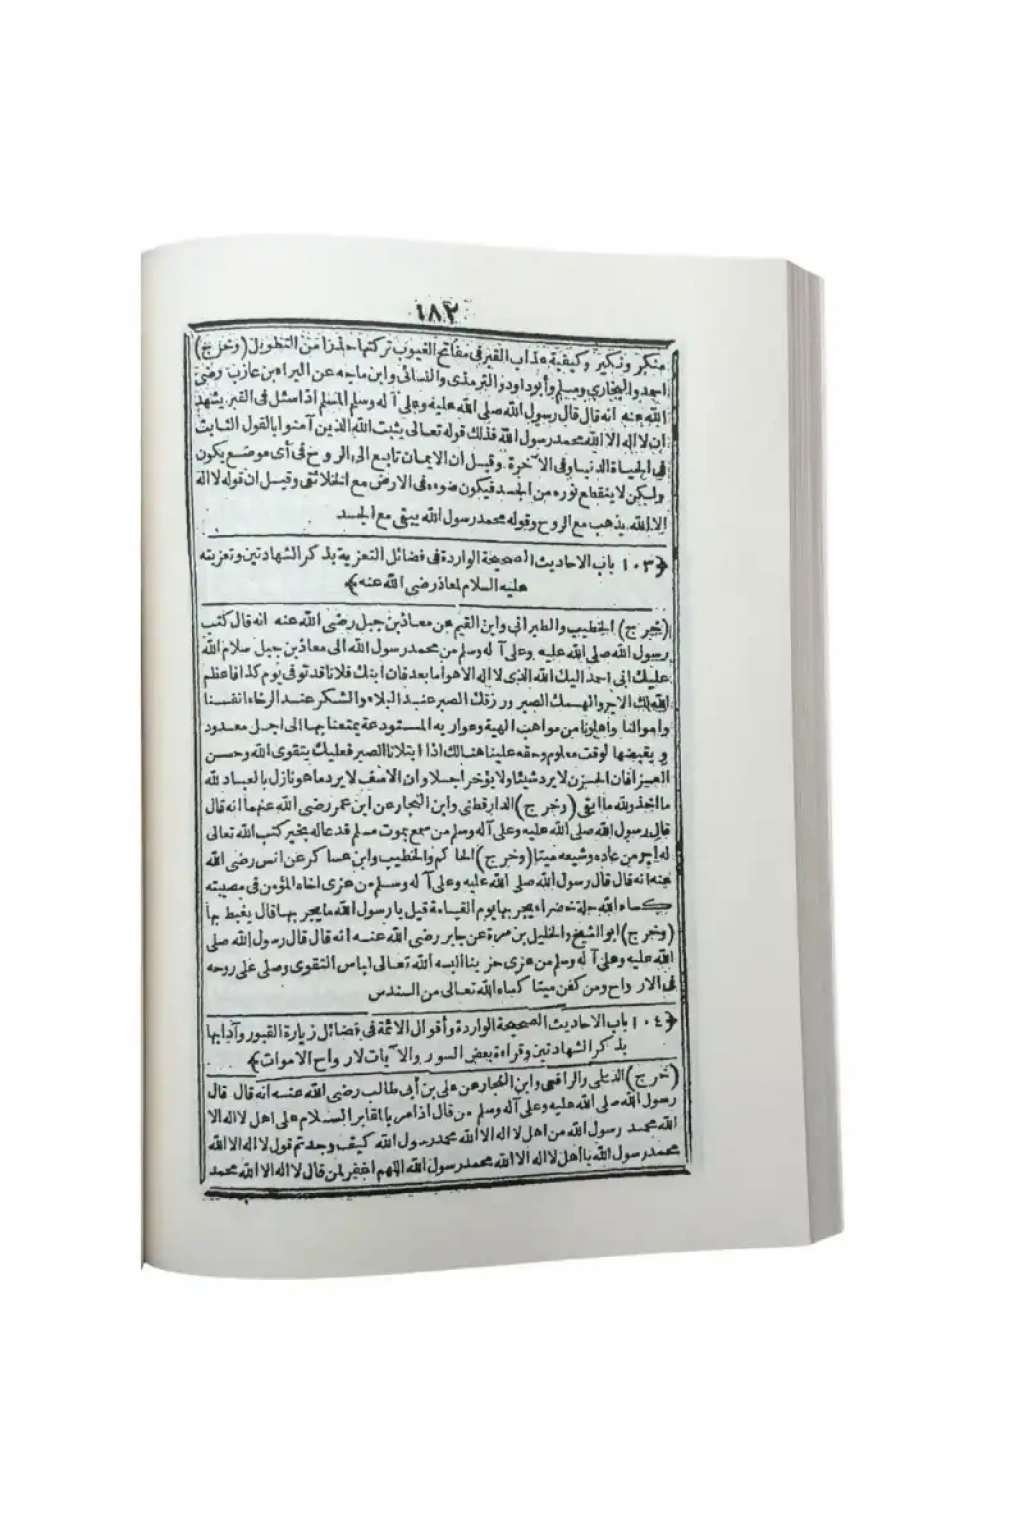 ١٨٢
منكر ونكير وكيفية عذاب القبر فى مفاتح الغيوب تركتها حذرا من التطويل (وخرج)
احمد والبخارى ومسلم وأبو داود والترمذى والنسائى وابن ماجه عن البراء بن عازب رضى
الله عنه انه قال قال رسول الله صلى الله عليه وعلى آله وسلم المسلم اذا سئل فى القبر يشهد
ان لا اله الا الله محمد رسول الله فذلك قوله تعالى يثبت الله الذين آمنوا بالقول الثابت
فى الحياة الدنيا وفى الآخرة وقيل ان الايمان تابع الى الروح فى أى موضع يكون
ولكن لا ينقطع نوره من الجسد فيكون ضوءه فى الارض مع الخلائق وقيل ان قوله لا اله
الا الله يذهب مع الروح وقوله محمد رسول الله يبقى مع الجسد
﴿١٠٣ باب الاحاديث الصحيحة الواردة فى فضائل التعزية بذكر الشهادتين وتعزيته
عليه السلام لمعاذ رضى الله عنه﴾
(خرج) الخطيب والطبرانى وابن القيم عن معاذ بن جبل رضى الله عنه انه قال كتب
رسول الله صلى الله عليه وعلى آله وسلم من محمد رسول الله الى معاذ بن جبل سلام الله
عليك انى احمد اليك الله الذى لا اله الا هو أما بعد فان ابنك فلانا قد توفى يوم كذا فاعظم
الله لك الاجر والهمك الصبر ورزقك الصبر عند البلاء والشكر عند الرخاء انفسنا
واموالنا وأهلونا من مواهب الهية وعواريه المستودعة يمتعنا بها الى اجل معدود
ويقبضها لوقت معلوم وحقه علينا هنالك اذا ابتلانا الصبر فعليك بتقوى الله وحسن
العزا فان الحزن لا يرد شيئا ولا يؤخر اجلا وان الاسف لا يرد ما هو نازل بالعباد لله
ما اخذ ولله ما ابقى (وخرج) الدارقطنى وابن النجار عن ابن عمر رضى الله عنهما انه قال
قال رسول الله صلى الله عليه وعلى آله وسلم من سمع بموت مسلم فدعا له بخير كتب الله تعالى
له اجر من عاده وشيعه ميتا (وخرج) الحاكم والخطيب وابن عساكر عن انس رضى الله
عنه انه قال قال رسول الله صلى الله عليه وعلى آله وسلم من عزى اخاه المؤمن فى مصيبته
كساه الله حلة خضراء يحبر بها يوم القيامة قيل يا رسول الله ما يحبر بها قال يغبط بها
(وخرج) ابو الشيخ والخليل بن مرة عن جابر رضى الله عنه انه قال قال رسول الله صلى
الله عليه وعلى آله وسلم من عزى حزينا البسه الله تعالى لباس التقوى وصلى على روحه
فى الارواح ومن كفن ميتا كساه الله تعالى من السندس
﴿١٠٤ باب الاحاديث الصحيحة الواردة وأقوال الائمة فى فضائل زيارة القبور وآدابها
بذكر الشهادتين وقراءة بعض السور والآيات لارواح الاموات﴾
(خرج) الديلى والرافعى وابن النجار عن على بن أبى طالب رضى الله عنه انه قال قال
رسول الله صلى الله عليه وعلى آله وسلم من قال اذا مر بالمقابر السلام على اهل لا اله الا
الله محمد رسول الله من اهل لا اله الا الله محمد رسول الله كيف وجدتم قول لا اله الا الله
محمد رسول الله يا أهل لا اله الا الله محمد رسول الله اللهم اغفر لمن قال لا اله الا الله محمد